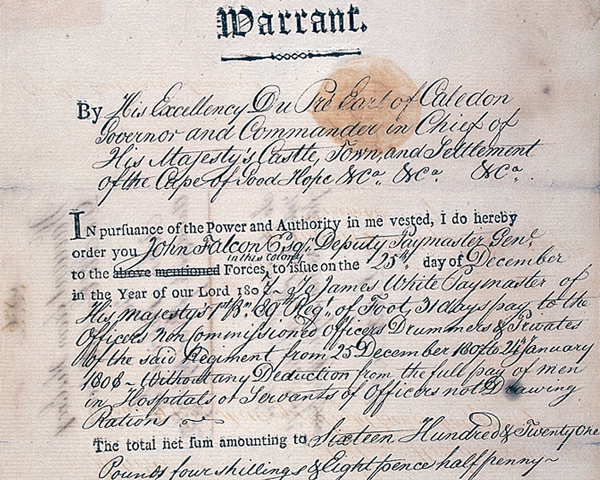 Warrant.
By His Excellency Du Pré Earl of Caledon
Governor and Commander in Chief of
His Majesty's Castle, Town, and Settlement
of the Cape of Good Hope &Ca. &Ca. &Ca.
IN pursuance of the Power and Authority in me vested, I do hereby
order you John Falcon Esqr. Deputy Paymaster Genl.
in this colony
to the above mentioned Forces, to issue on the 25th. day of December
in the Year of our Lord 1807 To James White Paymaster of
His Majesty's 1st Bn. Regt. of Foot, 31 days pay to the
Officers Non Commissioned Officers Drummers & Privates
of the said Regiment from 25 December 1807 to 24 January
1808 ~ Without any Deduction from the full pay of men
in Hospitals or Servants of Officers not Drawing
Rations
The total net sum amounting to Sixteen Hundred & Twenty One
Pounds four shillings & Eight pence half penny ~